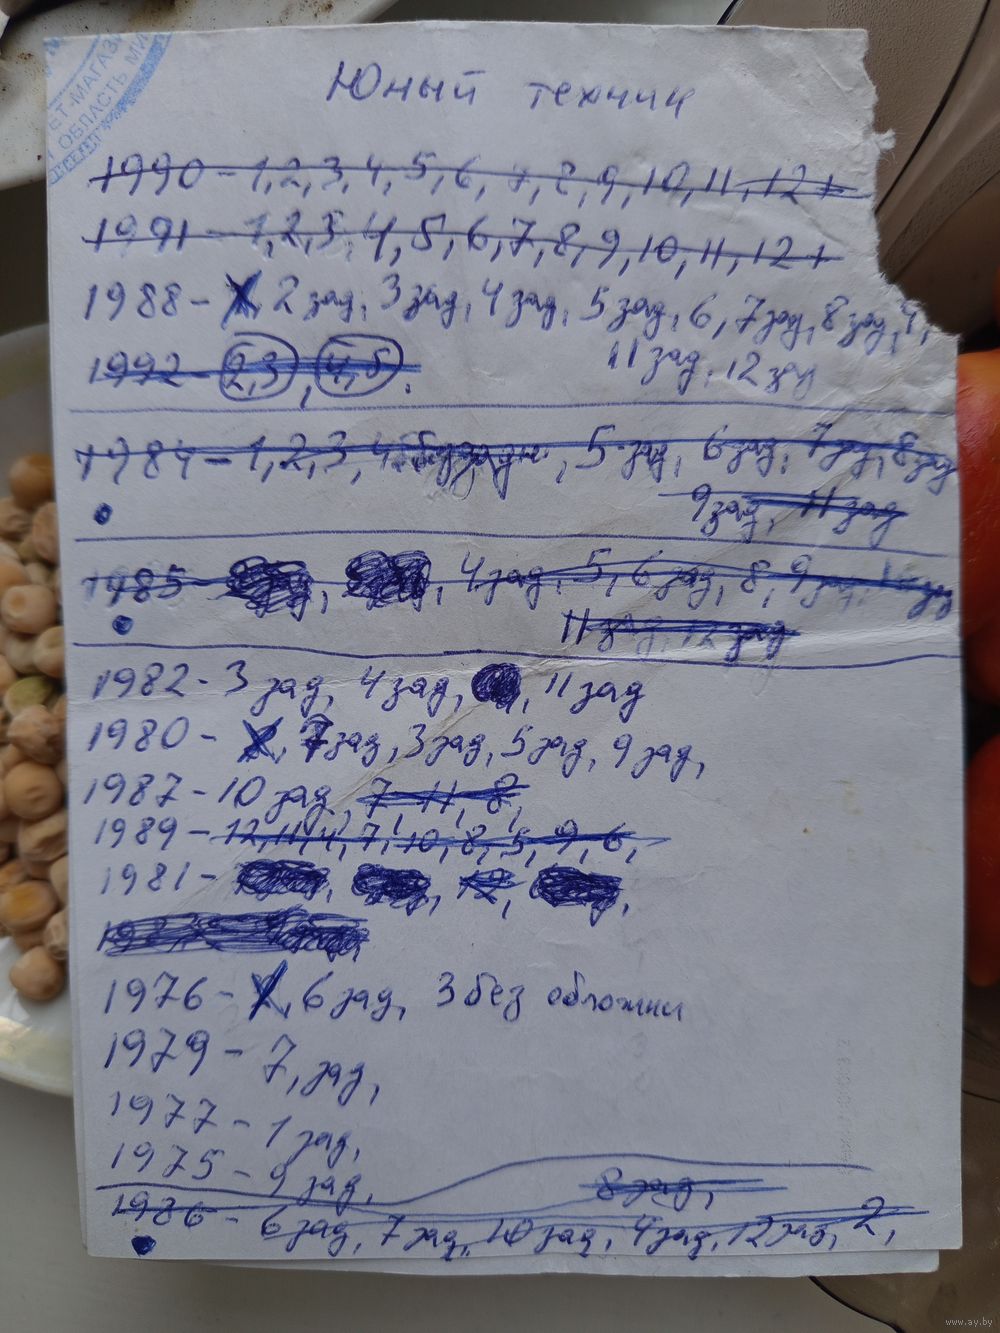 ЕТ-МАГАЗ
ОБЛАСТЬ МИ
Юный техник
1990 - 1, 2, 3, 4, 5, 6, 7, 8, 9, 10, 11, 12 +
1991 - 1, 2, 3, 4, 5, 6, 7, 8, 9, 10, 11, 12 +
1988 - 2 зад, 3 зад, 4 зад, 5 зад, 6, 7 зад, 8 зад,
11 зад, 12 зад
1992 - 2, 3, 4, 5.
1984 - 1, 2, 3, 4, 5 зад, 6 зад, 7 зад, 8 зад
9 зад, 11 зад
1985 - 4 зад, 5, 6 зад, 8, 9 зад,
11 зад, 12 зад
1982 - 3 зад, 4 зад, 11 зад
1980 - 7 зад, 3 зад, 5 зад, 9 зад,
1987 - 10 зад, 7, 11, 8,
1989 - 12, 11, 4, 7, 10, 8, 5, 9, 6,
1981 -
1976 - 6 зад, 3 без обложки
1979 - 7, зад,
1977 - 1 зад,
1975 - 9 зад,
8 зад,
1986 - 6 зад, 7 зад, 10 зад, 4 зад, 12 зад, 2,
www.ay.by